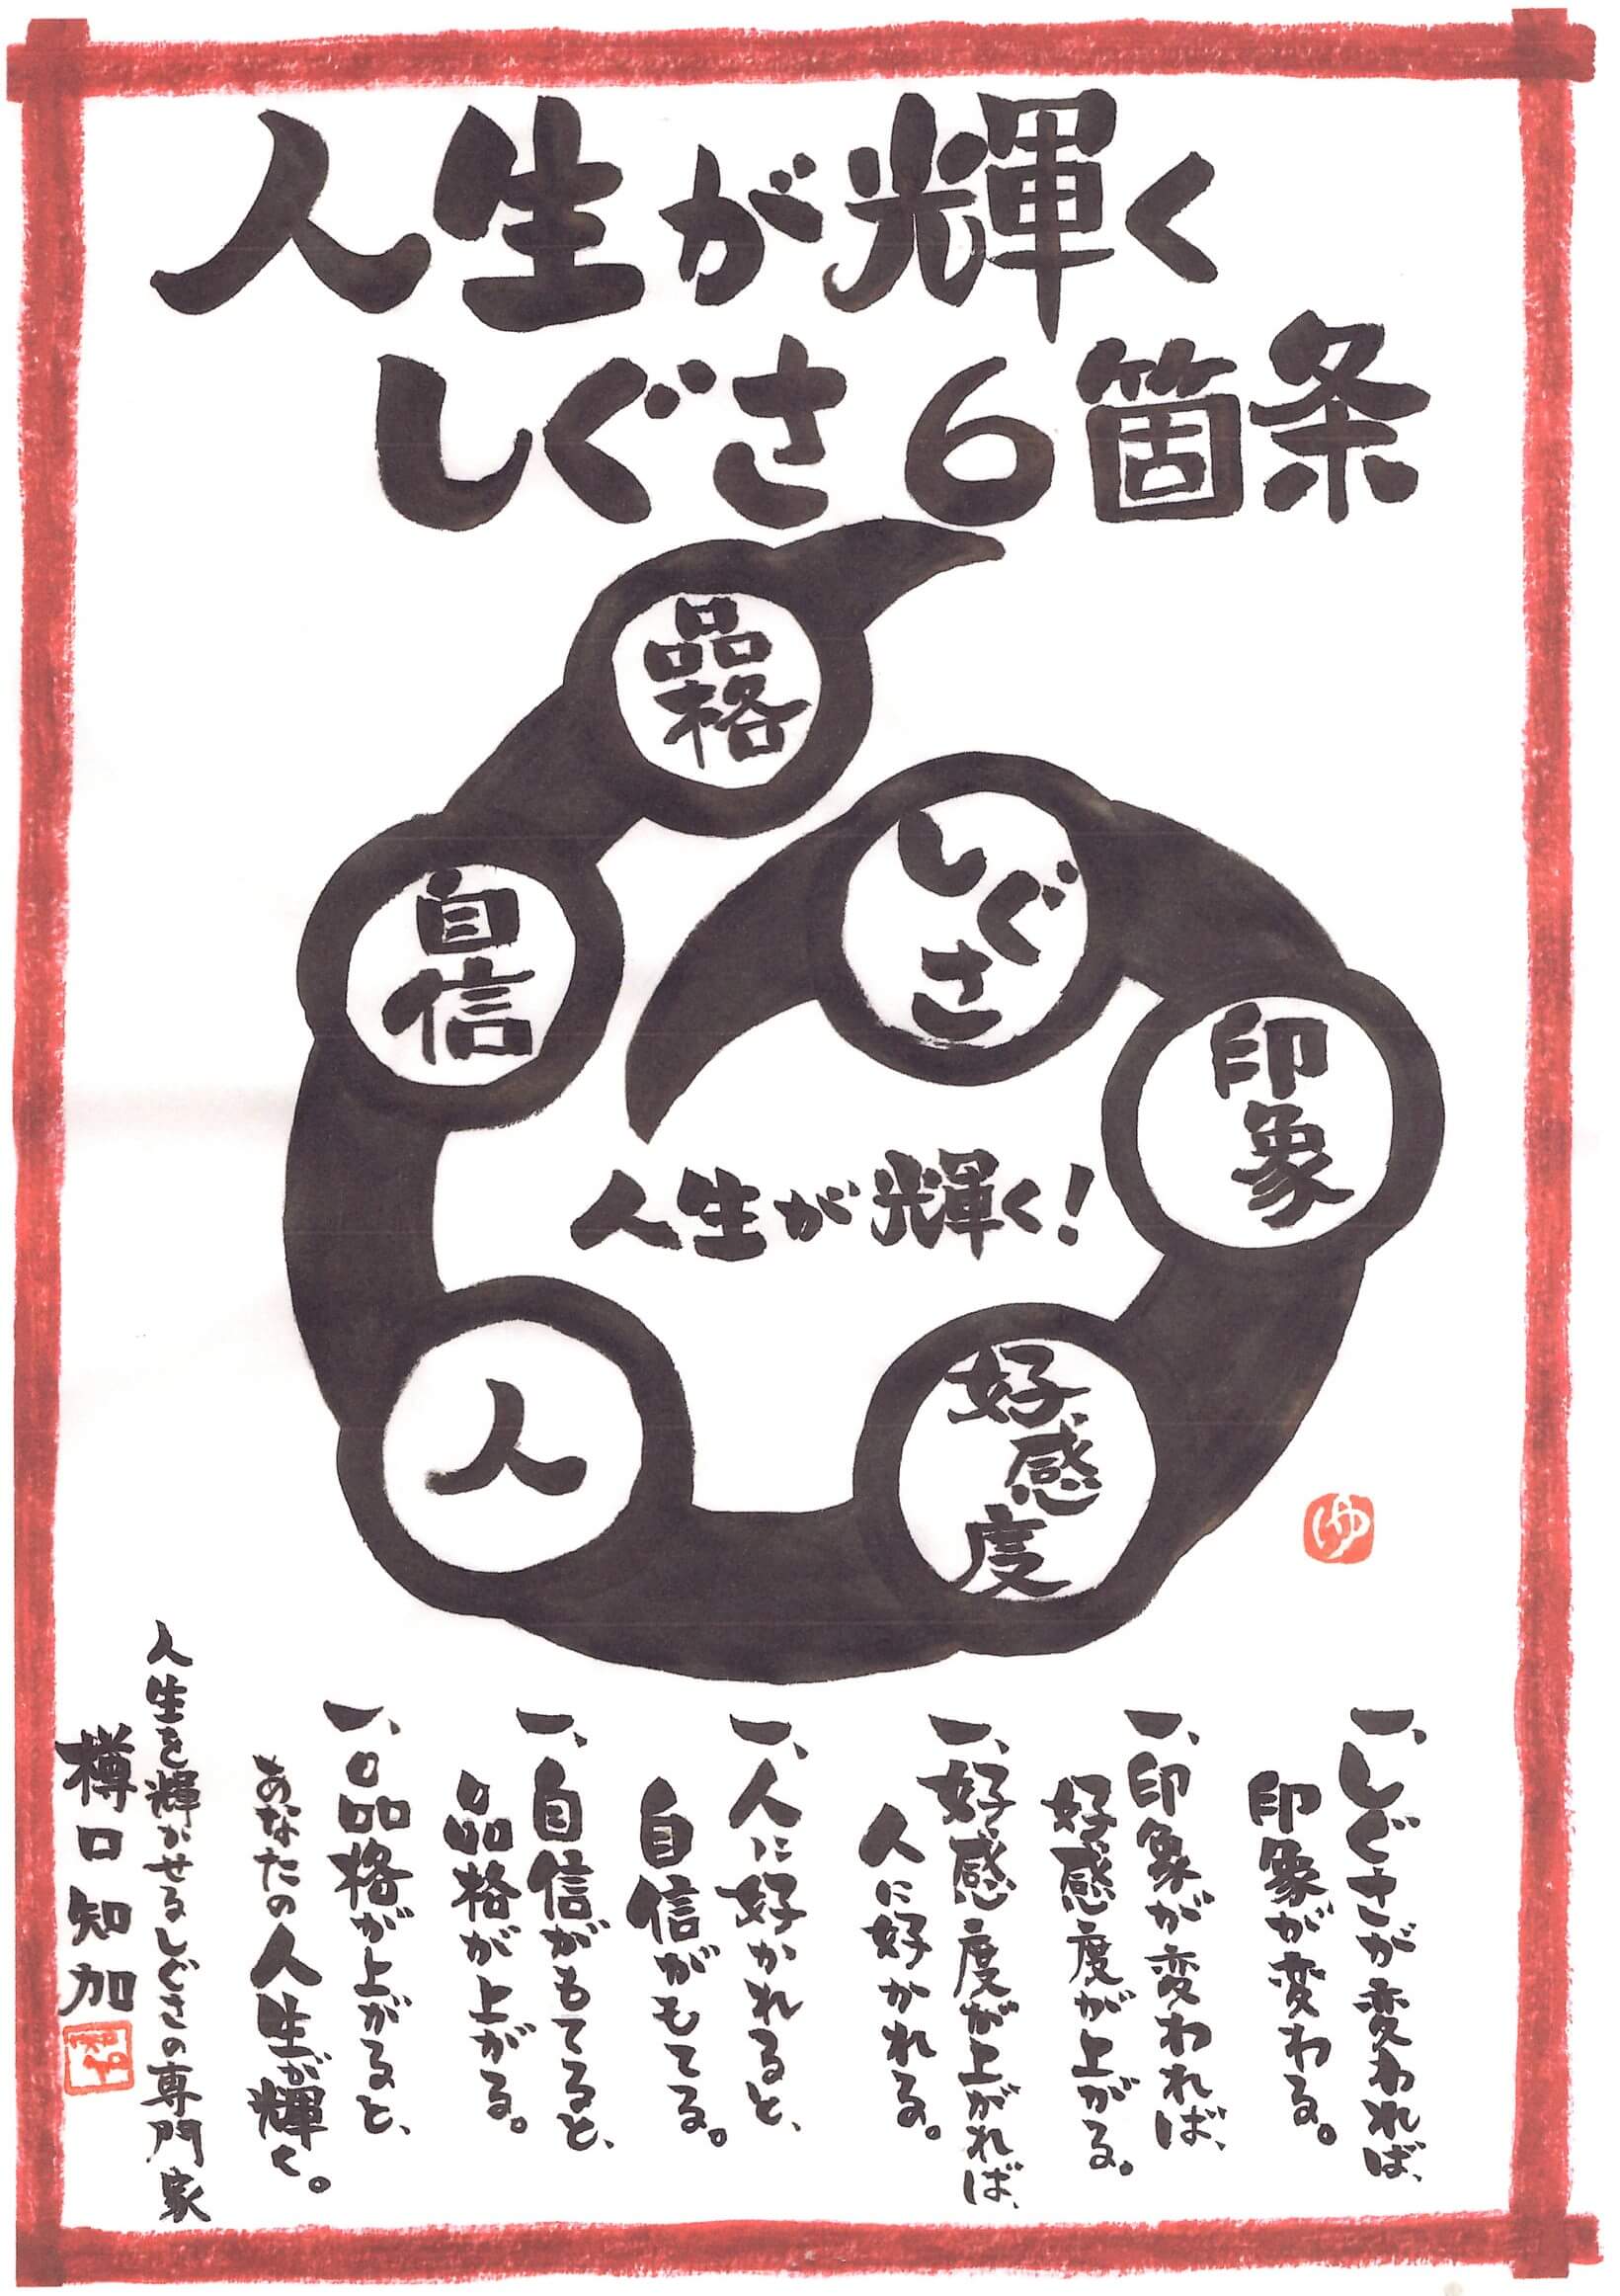 人生が輝く
しぐさ6箇条
品格
しぐさ
自信
印象
人生が輝く！
人
好感度
ゆ
一、しぐさが変われば、
印象が変わる。
一、印象が変われば、
好感度が上がる。
一、好感度が上がれば、
人に好かれる。
一、人に好かれると、
自信がもてる。
一、自信がもてると、
品格が上がる。
一、品格が上がると、
あなたの人生が輝く。
人生を輝かせるしぐさの専門家
樽口知加